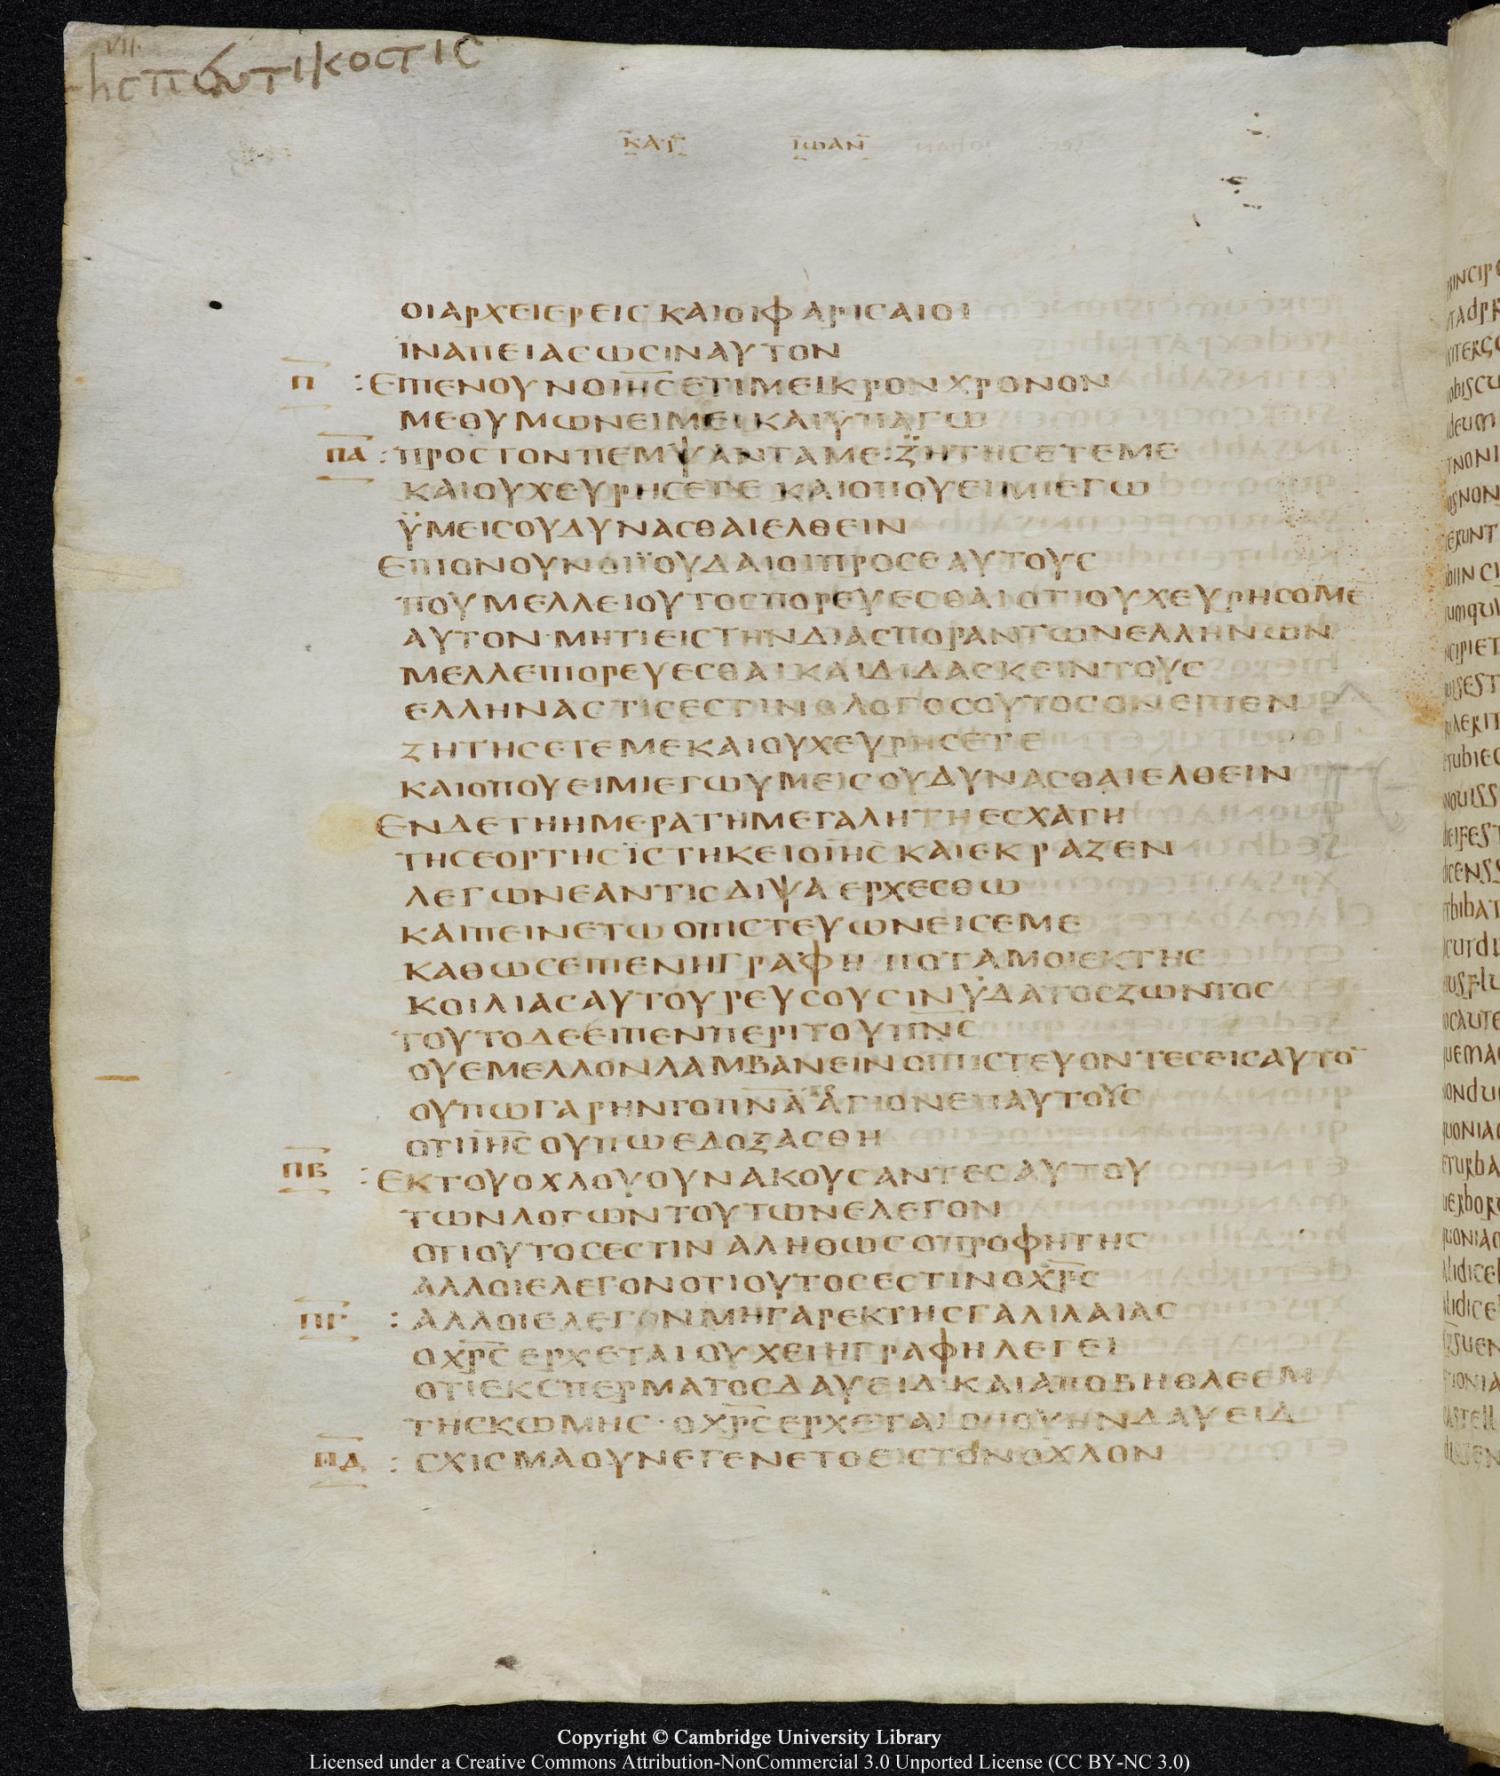 VII
ΗϹ ΠΕΝΤΙΚΟϹΤΙϹ
ΚΑΤ ΙΩΑΝ
ΟΙΑΡΧΕΙΕΡΕΙϹ ΚΑΙΟΙΦΑΡΙϹΑΙΟΙ
ΪΝΑΠΕΙΑϹΩϹΙΝΑΥΤΟΝ
Π :ΕΙΠΕΝΟΥΝΟΙΗϹΕΤΙΜΕΙΚΡΟΝΧΡΟΝΟΝ
ΜΕΘΥΜΩΝΕΙΜΕΙΚΑΙΫΠΑΓΩ
ΠΑ : ΠΡΟϹΤΟΝΠΕΜΨΑΝΤΑΜΕ:ΖΗΤΗϹΕΤΕΜΕ
ΚΑΙΟΥΧΕΥΡΗϹΕΤΕ ΚΑΙΟΠΟΥΕΙΜΙΕΓΩ
ΫΜΕΙϹΟΥΔΥΝΑϹΘΑΙΕΛΘΕΙΝ
ΕΙΠΟΝΟΥΝΟΙΪΟΥΔΑΙΟΙΠΡΟϹΕΑΥΤΟΥϹ
ΠΟΥΜΕΛΛΕΙΟΥΤΟϹΠΟΡΕΥΕϹΘΑΙΟΤΙΟΥΧΕΥΡΗϹΟΜΕ
ΑΥΤΟΝ·ΜΗΤΙΕΙϹΤΗΝΔΙΑϹΠΟΡΑΝΤΩΝΕΛΛΗΝΩΝ
ΜΕΛΛΕΙΠΟΡΕΥΕϹΘΑΙΚΑΙΔΙΔΑϹΚΕΙΝΤΟΥϹ
ΕΛΛΗΝΑϹ ΤΙϹΕϹΤΙΝΟΛΟΓΟϹΟΥΤΟϹΟΝΕΙΠΕΝ
ΖΗΤΗϹΕΤΕΜΕΚΑΙΟΥΧΕΥΡΗϹΕΤΕ
ΚΑΙΟΠΟΥΕΙΜΙΕΓΩΥΜΕΙϹΟΥΔΥΝΑϹΘΑΙΕΛΘΕΙΝ
ΕΝΔΕΤΗΗΜΕΡΑΤΗΜΕΓΑΛΗΤΗΕϹΧΑΤΗ
ΤΗϹΕΟΡΤΗϹ ΪϹΤΗΚΕΙΟΙΗϹ ΚΑΙΕΚΡΑΖΕΝ
ΛΕΓΩΝΕΑΝΤΙϹΔΙΨΑ ΕΡΧΕϹΘΩ
ΚΑΙΠΕΙΝΕΤΩ ΟΠΙϹΤΕΥΩΝΕΙϹΕΜΕ
ΚΑΘΩϹΕΙΠΕΝΗΓΡΑΦΗ ΠΟΤΑΜΟΙΕΚΤΗϹ
ΚΟΙΛΙΑϹΑΥΤΟΥΡΕΥϹΟΥϹΙΝΫΔΑΤΟϹΖΩΝΤΟϹ
ΤΟΥΤΟΔΕΕΙΠΕΝΠΕΡΙΤΟΥΠΝϹ
ΟΥΕΜΕΛΛΟΝΛΑΜΒΑΝΕΙΝΟΙΠΙϹΤΕΥΟΝΤΕϹΕΙϹΑΥΤΟ
ΟΥΠΩΓΑΡΗΝΤΟΠΝΑΑΓΙΟΝΕΠΑΥΤΟΥϹ
ΟΤΙΙΗϹΟΥΠΩΕΔΟΞΑϹΘΗ
ΠΒ :ΕΚΤΟΥΟΧΛΟΥΟΥΝΑΚΟΥϹΑΝΤΕϹΑΥΤΟΥ
ΤΩΝΛΟΓΩΝΤΟΥΤΩΝΕΛΕΓΟΝ
ΟΤΙΟΥΤΟϹΕϹΤΙΝ ΑΛΗΘΩϹΟΠΡΟΦΗΤΗϹ
ΑΛΛΟΙΕΛΕΓΟΝΟΤΙΟΥΤΟϹΕϹΤΙΝΟΧΡϹ
ΠΓ : ΑΛΛΟΙΕΛΕΓΟΝΜΗΓΑΡΕΚΤΗϹΓΑΛΙΛΑΙΑϹ
ΟΧΡϹ ΕΡΧΕΤΑΙΟΥΧΕΙΗΓΡΑΦΗΛΕΓΕΙ
ΟΤΙΕΚϹΠΕΡΜΑΤΟϹΔΑΥΕΙΔ·ΚΑΙΑΠΟΒΗΘΛΕΕΜ
ΤΗϹΚΩΜΗϹ·ΟΧΡϹΕΡΧΕΤΑΙΟΠΟΥΗΝΔΑΥΕΙΔ
ΠΔ : ϹΧΙϹΜΑΟΥΝΕΓΕΝΕΤΟΕΙϹΤΟΝΟΧΛΟΝ
Copyright © Cambridge University Library
Licensed under a Creative Commons Attribution-NonCommercial 3.0 Unported License (CC BY-NC 3.0)